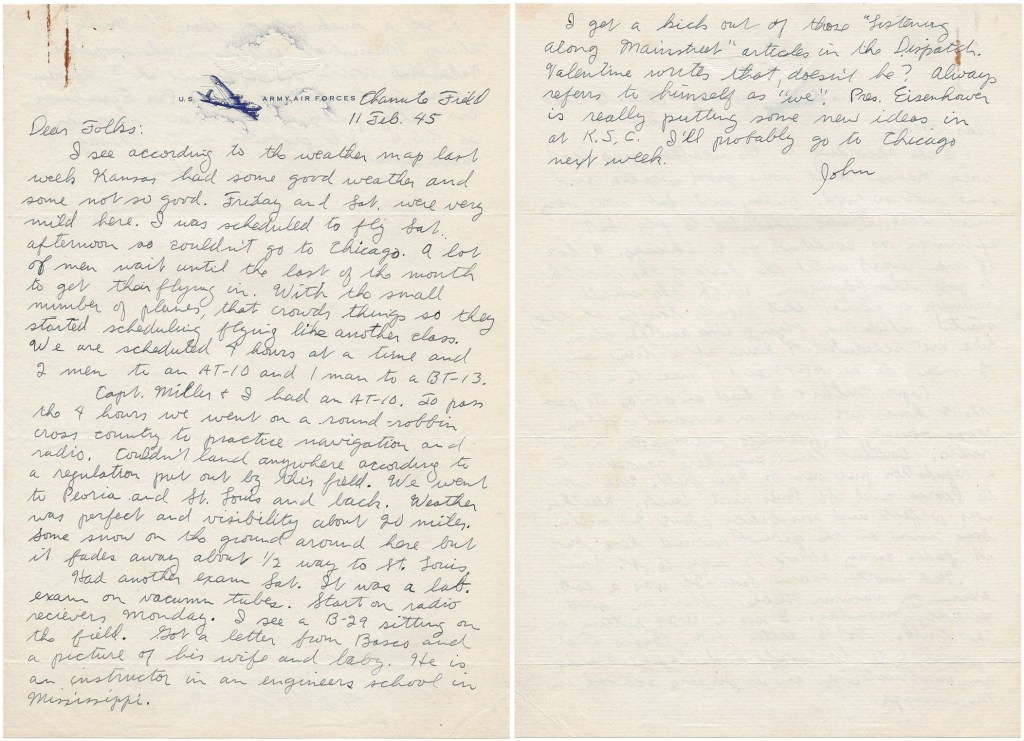 U.S. ARMY AIR FORCES Chanute Field
11 Feb. 45
Dear Folks:
I see according to the weather map last
week Kansas had some good weather and
some not so good. Friday and Sat. were very
mild here. I was scheduled to fly Sat.
afternoon so couldn't go to Chicago. A lot
of men wait until the last of the month
to get their flying in. With the small
number of planes, that crowds things so they
started scheduling flying like another class.
We are scheduled 4 hours at a time and
2 men to an AT-10 and 1 man to a BT-13.
Capt. Miller & I had an AT-10. To pass
the 4 hours we went on a round-robbin
cross country to practice navigation and
radio. Couldn't land anywhere according to
a regulation put out by this field. We went
to Peoria and St. Louis and back. Weather
was perfect and visibility about 20 miles.
Some snow on the ground around here but
it fades away about 1/2 way to St. Louis.
Had another exam Sat. It was a lab.
exam on vacumn tubes. Start on radio
recievers Monday. I see a B-29 sitting on
the field. Got a letter from Bosco and
a picture of his wife and baby. He is
an instructor in an engineers school in
Mississippi.
I get a kick out of those "Listening
along Mainstreet" articles in the Dispatch.
Valentine writes that, doesn't he? Always
referrs to himself as "we". Pres. Eisenhower
is really putting some new ideas in
at K.S.C. I'll probably go to Chicago
next week.
John